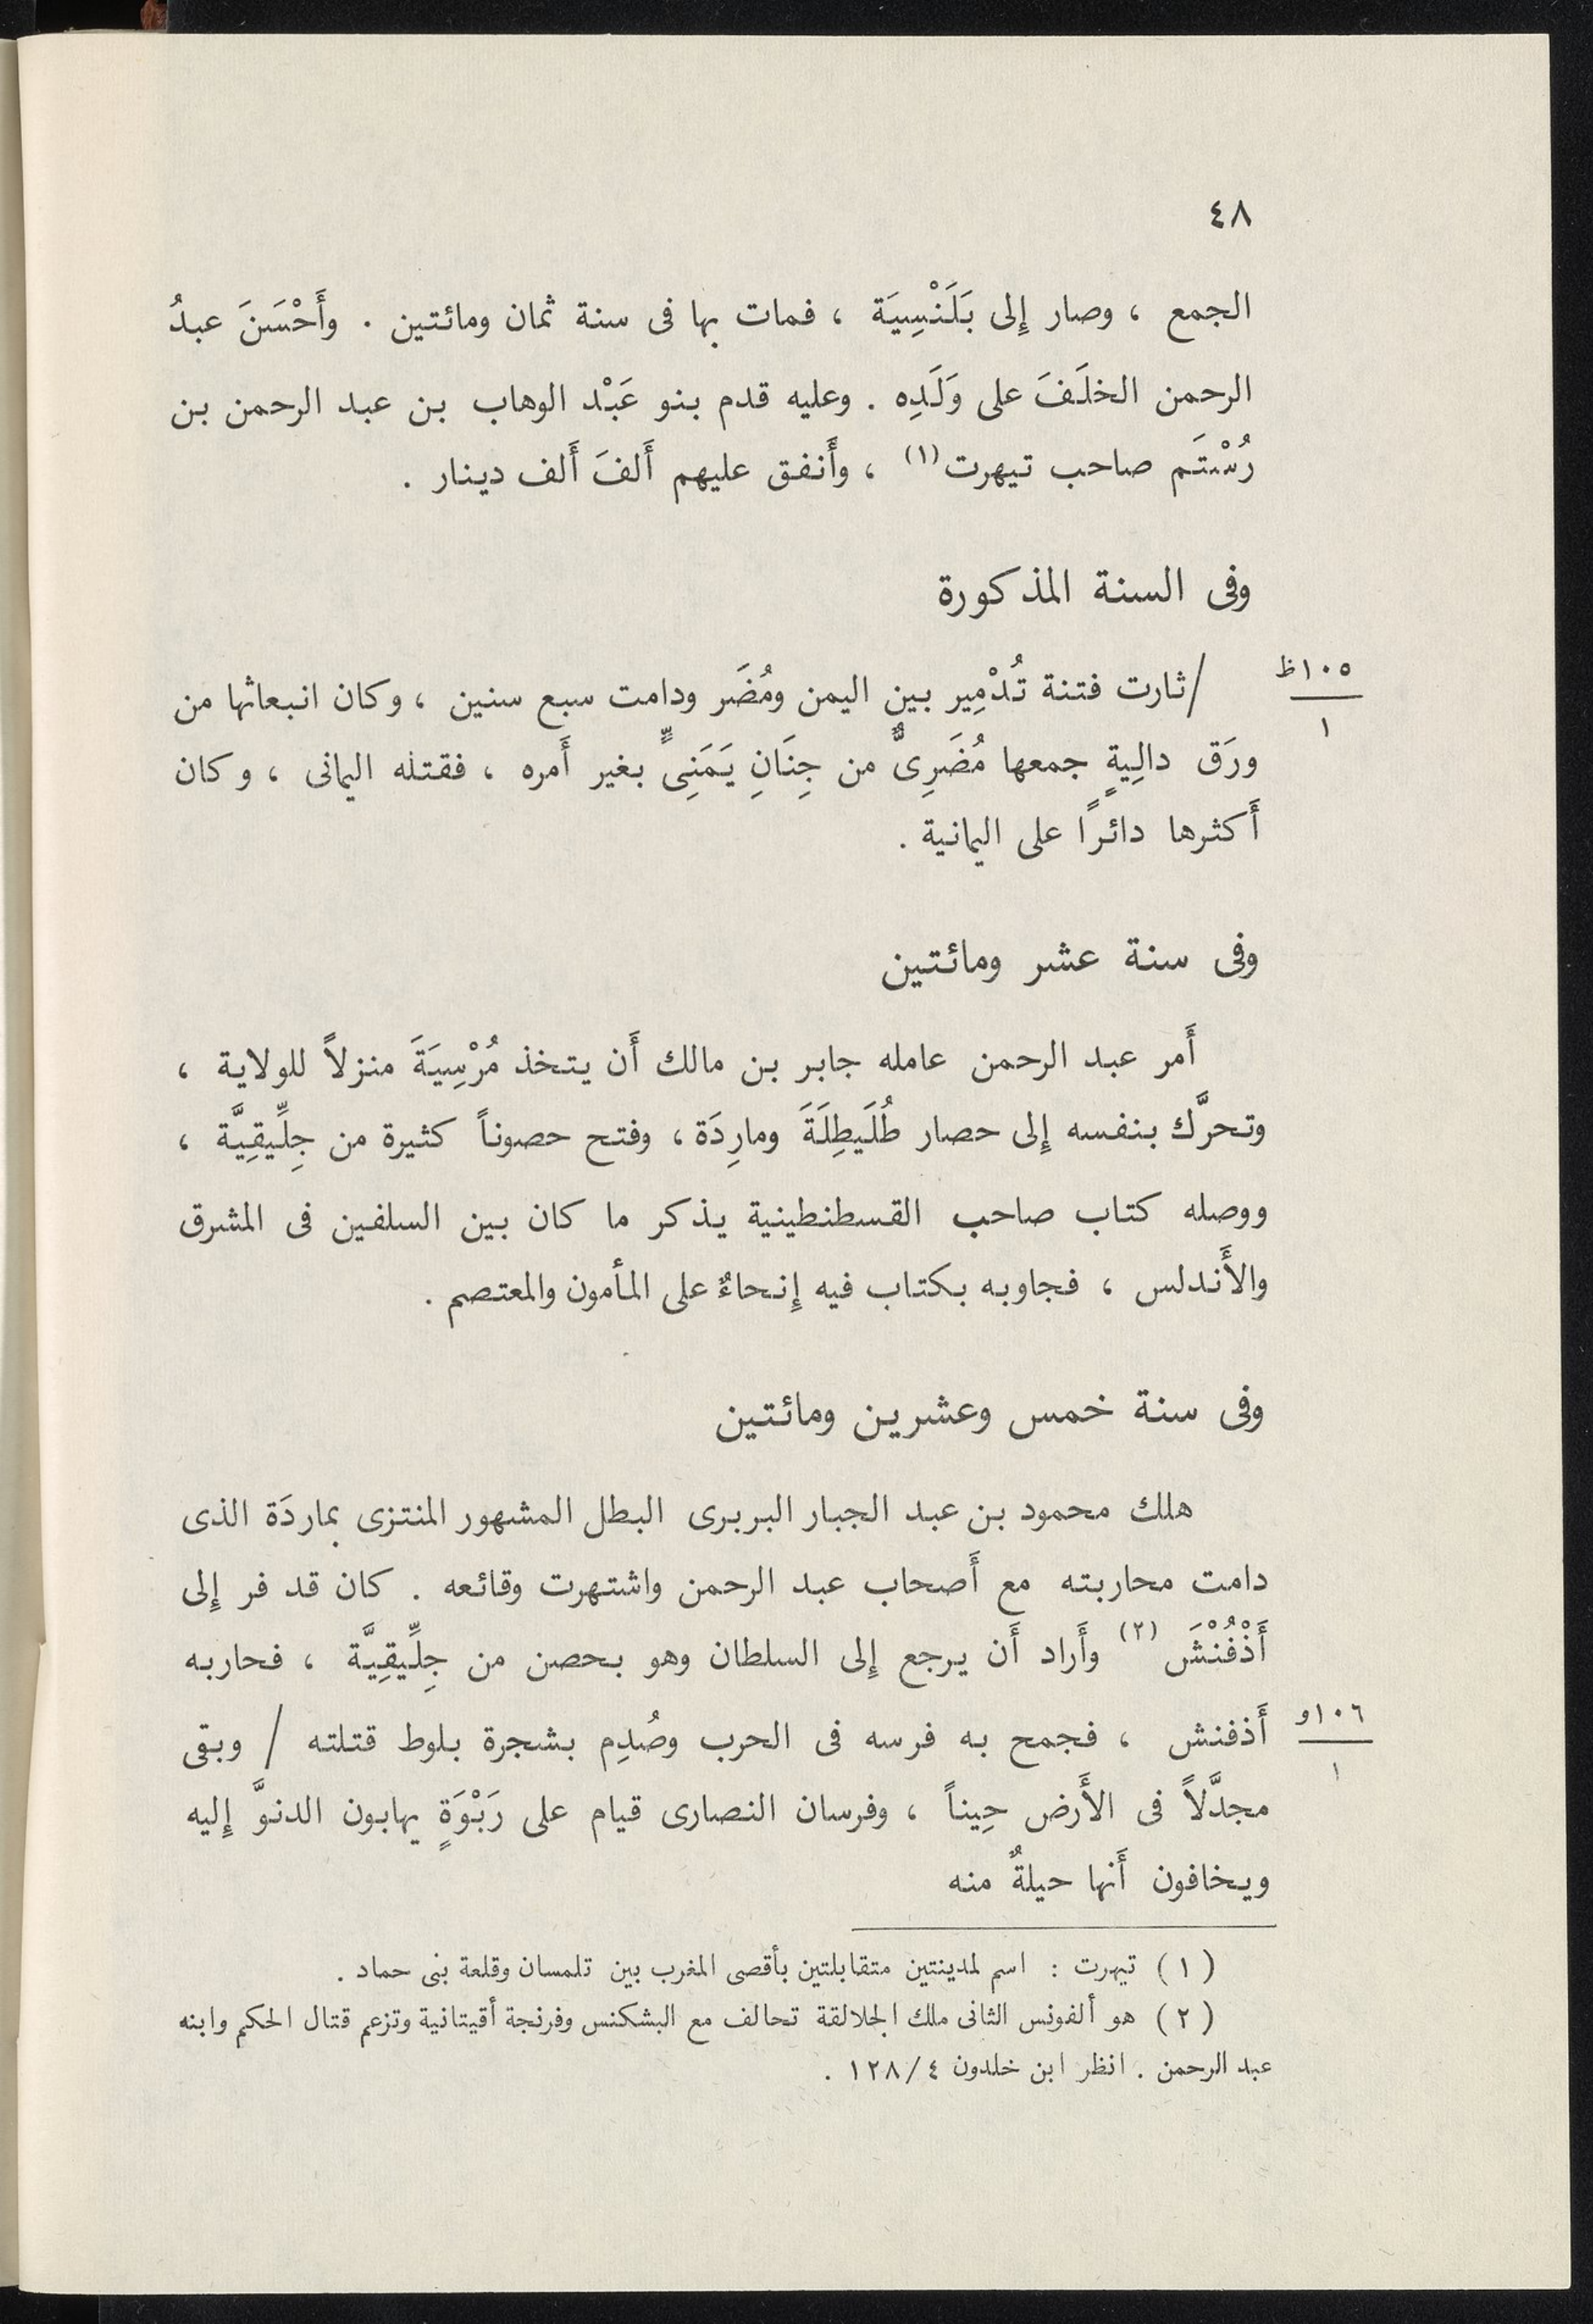 ٤٨
الجمع ، وصار إِلى بَلَنْسِيَة ، فمات بها فى سنة ثمان ومائتين . وأَحْسَنَ عبدُ
الرحمن الخلَفَ على وَلَدِه . وعليه قدم بنو عَبْد الوهاب بن عبد الرحمن بن
رُسْتَم صاحب تيهرت(١) ، وأَنفق عليهم أَلفَ أَلف دينار .
وفى السنة المذكورة
١٠٥ظ
١
/ثارت فتنة تُدْمِير بين اليمن ومُضَر ودامت سبع سنين ، وكان انبعاثها من
ورَق دالِيةٍ جمعها مُضَرِىٌّ من جِنَانِ يَمَنِىٍّ بغير أَمره ، فقتله اليمانى ، وكان
أَكثرها دائرًا على اليمانية .
وفى سنة عشر ومائتين
أَمر عبد الرحمن عامله جابر بن مالك أَن يتخذ مُرْسِيَةَ منزلاً للولاية ،
وتحرَّك بنفسه إِلى حصار طُلَيطِلَةَ ومارِدَة ، وفتح حصوناً كثيرة من جِلِّيقِيَّة ،
ووصله كتاب صاحب القسطنطينية يذكر ما كان بين السلفين فى المشرق
والأَندلس ، فجاوبه بكتاب فيه إِنحاءٌ على المأمون والمعتصم .
وفى سنة خمس وعشرين ومائتين
هلك محمود بن عبد الجبار البربرى البطل المشهور المنتزى بماردَة الذى
دامت محاربته مع أَصحاب عبد الرحمن واشتهرت وقائعه . كان قد فر إِلى
أَذْفُنْشَ (٢) وأَراد أَن يرجع إِلى السلطان وهو بحصن من جِلِّيقِيَّة ، فحاربه
١٠٦و
١
أَذفنش ، فجمح به فرسه فى الحرب وصُدِم بشجرة بلوط قتلته / وبقى
مجدَّلاً فى الأَرض حِيناً ، وفرسان النصارى قيام على رَبْوَةٍ يهابون الدنوَّ إِليه
ويخافون أَنها حيلةٌ منه
(١) تيهرت : اسم لمدينتين متقابلتين بأقصى المغرب بين تلمسان وقلعة بنى حماد .
(٢) هو ألفونس الثانى ملك الجلالقة تحالف مع البشكنس وفرنجة أقيتانية وتزعم قتال الحكم وابنه
عبد الرحمن . انظر ابن خلدون ٤/١٢٨ .